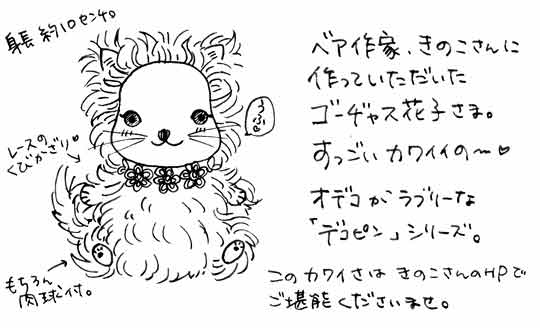 身長 約10センチ。
ベア作家、きのこさんに
作っていただいた
ゴーヂャス花子さま。
すっごい カワイイの〜♥
オデコが ラブリーな
「デコピン」シリーズ。
このカワイさは きのこさんのHPで
ご堪能くださいませ。
うふ♥
レースの
くびかざり♥
もちろん
肉球付。